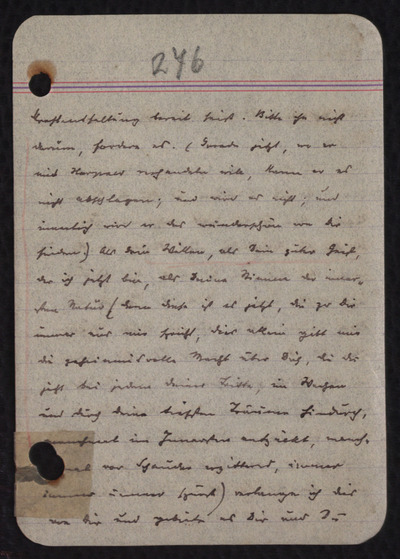 246
Kraftentfaltung bereit seist. Bitte ihn nicht
darum, fordere es. (Gerade jetzt, wo er
mit verhandeln will, kann er es
nicht abschlagen; und wird es nicht; und
wird er das wunderschön von Dir
finden.) Als Dein Wille, als Dein guter Geist,
der ich jetzt bin, als Deine Stimme der inner-
sten Natur (denn diese ist es jetzt, die zu Dir
immer aus mir spricht, dies allein gibt mir
die geheimnisvolle Macht über Dich, die Du
jetzt bei jedem Deiner Schritte, im Wachen
und durch Deine tiefsten Träume hindurch,
manchmal im Innersten entzückt, manch-
mal vor Schauder erzitternd, immer
immer immer spürst) verlange ich dies
von Dir und gebiete es Dir und Du